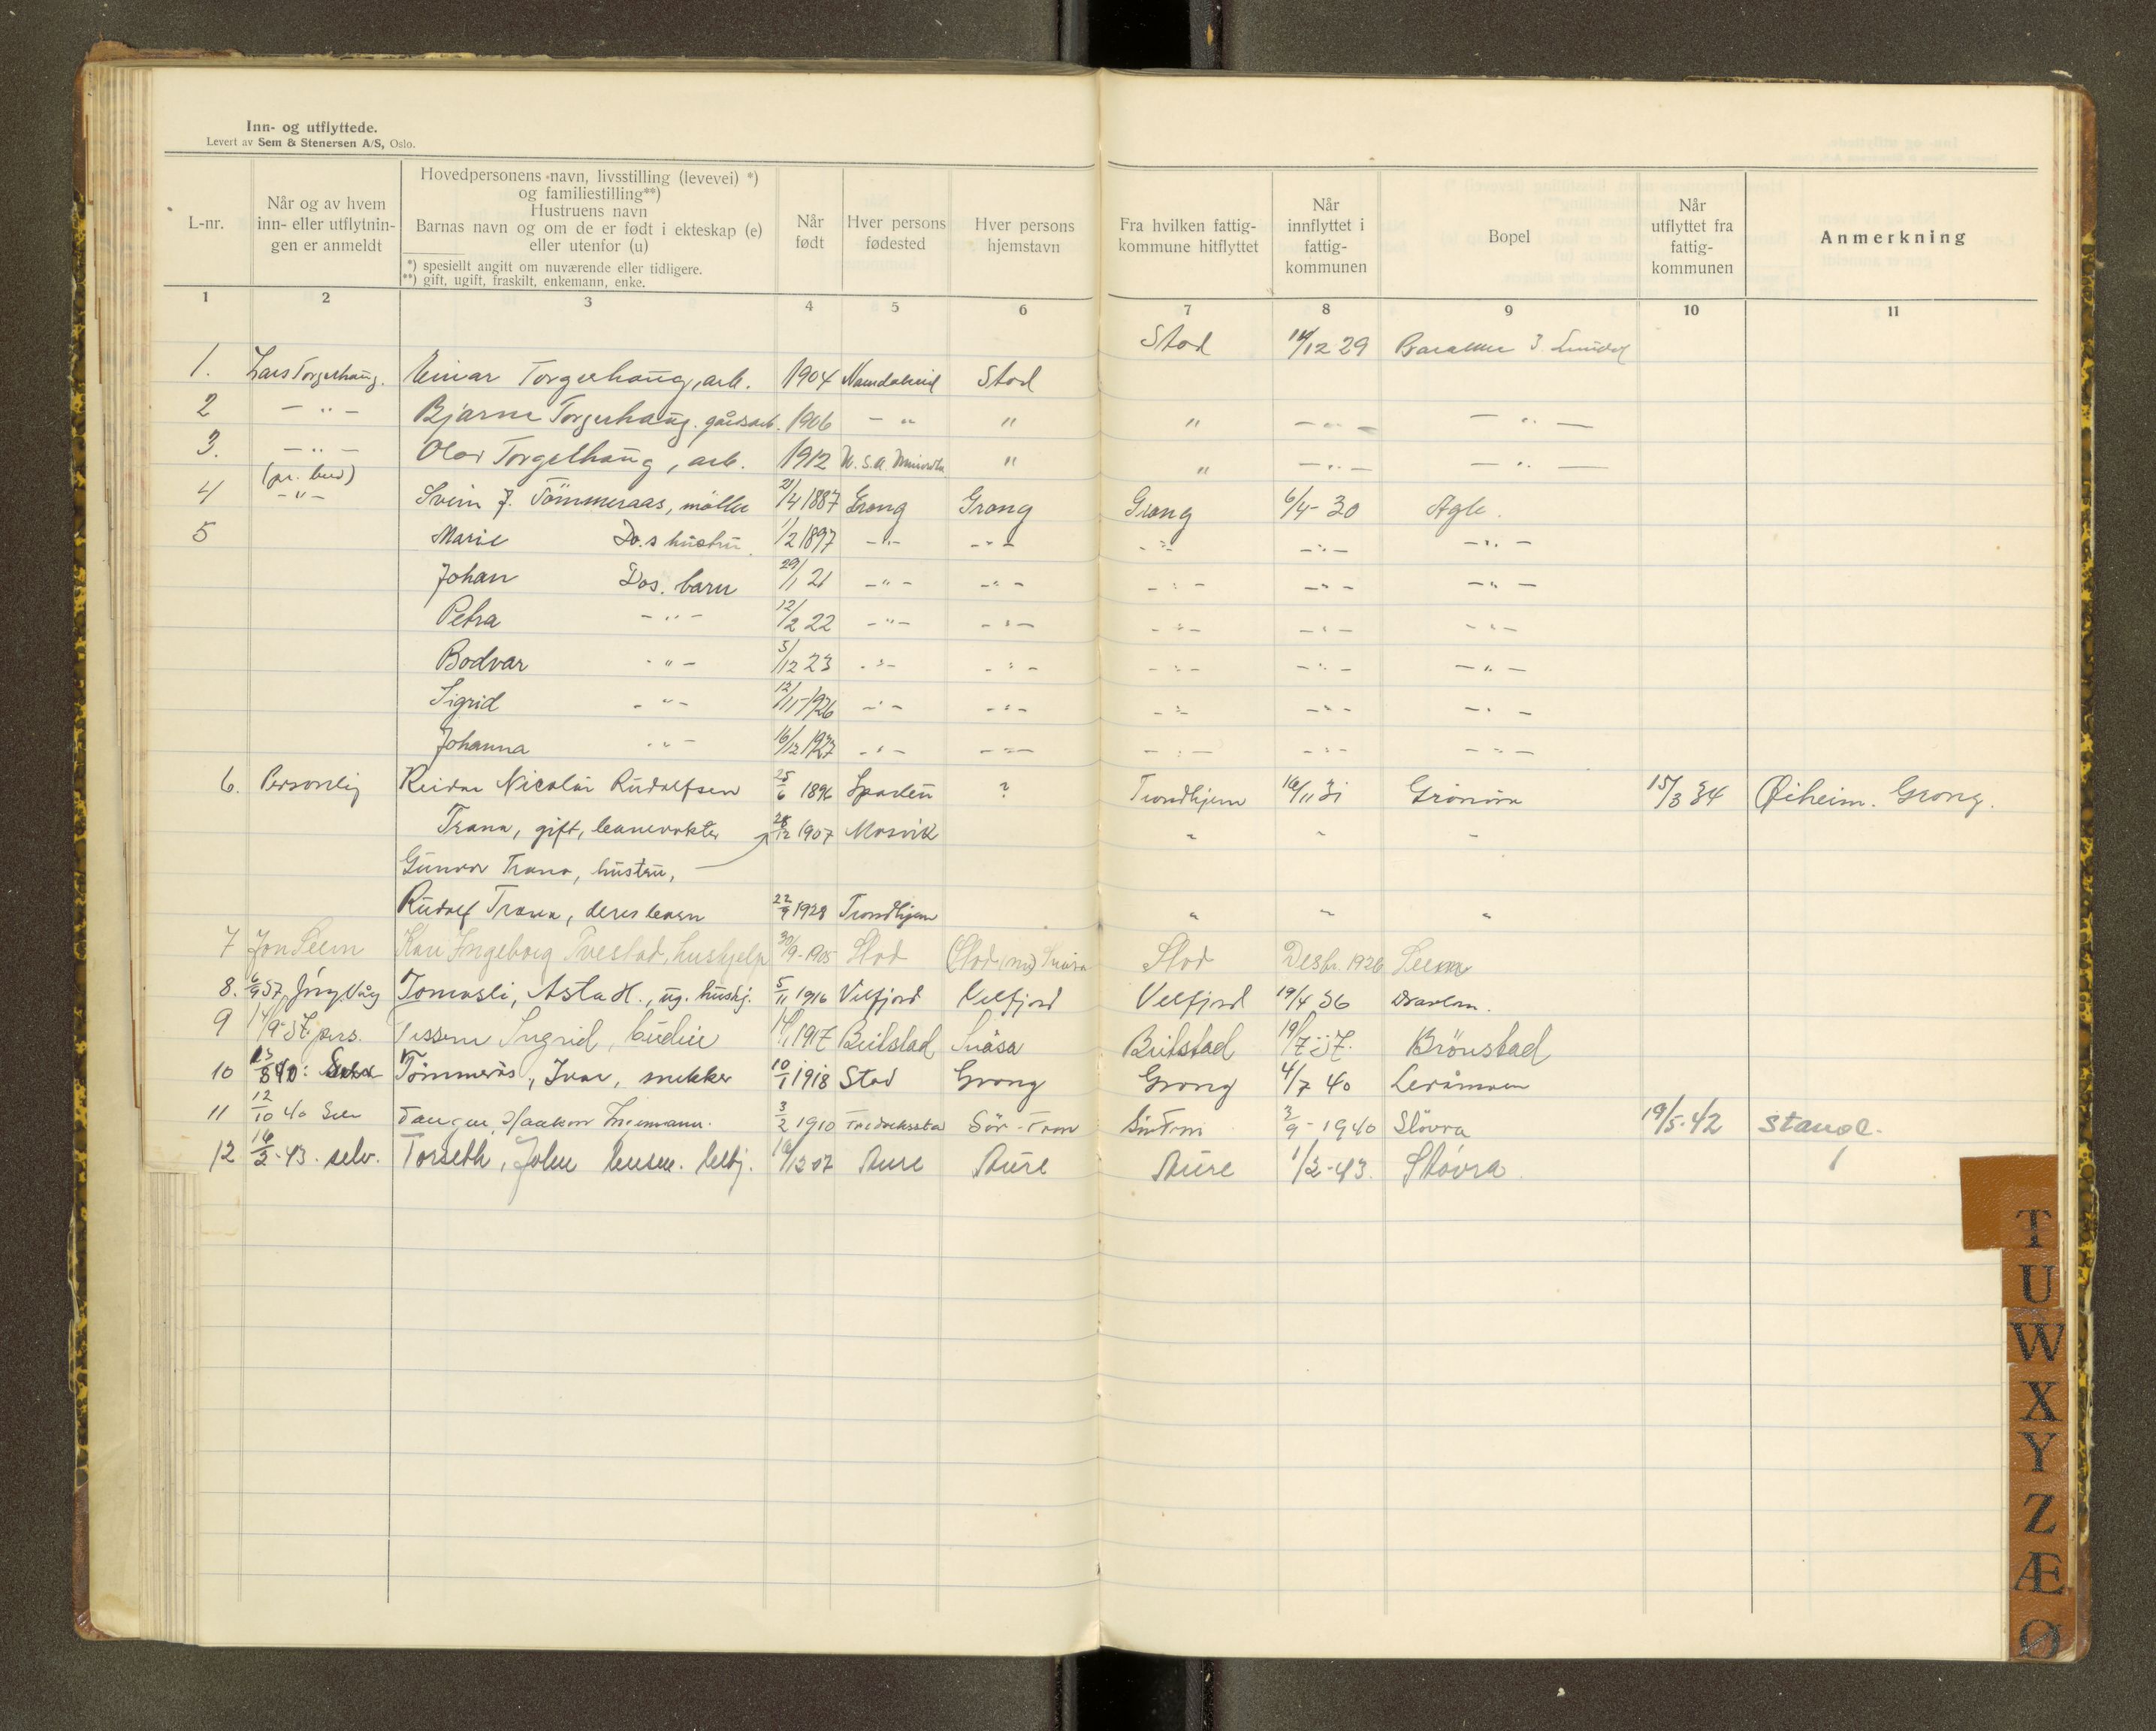 Inn- og utflyttede.
Levert av Sem & Stenersen A/S, Oslo.
L-nr.
Når og av hvem
inn- eller utflytnin-
gen er anmeldt
Hovedpersonens navn, livsstilling (levevei) *)
og familiestilling**)
Hustruens navn
Barnas navn og om de er født i ekteskap (e)
eller utenfor (u)
*) spesiellt angitt om nuværende eller tidligere.
**) gift, ugift, fraskilt, enkemann, enke.
Når
født
Hver persons
fødested
Hver persons
hjemstavn
Fra hvilken fattig-
kommune hitflyttet
Når
innflyttet i
fattig-
kommunen
Bopel
Når
utflyttet fra
fattig-
kommunen
Anmerkning
1 2 3 4 5 6 7 8 9 10 11
1. Lars Torgerhaug. Einar Torgerhaug, arb. 1904 Namdaleid Stod Stod 14/12 29
2 - " - Bjarne Torgerhaug. gårdsarb. 1906 - " " " - " - - " -
3. - " - Olav Torgelhaug, arb. 1912 U.S.A. " " - " - - " -
(pr. bud)
4 - " - Svein J. Tömmeraas, möller 21/4 1887 Grong Grong Grong 6/4-30 Agle.
5 Marie Do.s hustru 1/2 1897 - " - - " - - " - - " - - " -
Johan Dos. barn 29/1 21 - " - - " - - " - - " - - " -
Petra - " - 12/2 22 - " - - " - - " - - " - - " -
Bodvar - " - 3/12 23 - " - - " - - " - - " - - " -
Sigrid - " - 12/11-1926 - " - - " - - " - - " - - " -
Johanna - " - 16/12 1927 - " - - " - - " - - " - - " -
6. Personlig Reidar Nicolai Rudolfsen 25/6 1896 Sparbu ? Trondhjem 16/11 31 Grönora 15/3 34 Øiheim. Grong.
Trana, gift, banevokter 28/12 1907 Mosvik " " "
Gunvor Trana, hustru,
Rudolf Trana, deres barn 22/9 1928 Trondhjem " " "
7 Jon Seem Kari Ingeborg Tvestad, hushjelp 30/9-1905 Stod (Stod (nu) Snåsa Stod Desbr. 1926 Seem
8. 6/9 37, Våg Tomasli, Asta H., ug. hushj. 5/11 1916 Velfjord Velfjord Velfjord 19/4 36
9 37 pers. Tessem Ingrid, budeie 1917 Beitstad Snåsa Beitstad 19/7 37. Brönstad
10 Tömmerås, Ivar, snekker 10/1 1918 Stod Grong Grong 4/7 40 Leråmoen
11 12/10 40 Selv Tangen, Haakon 3/2 1910 Sör-Fron Sör Fron 3/9-1940 Stövra 19/5-42 Stange.
12 16/2-43. selv. Torseth, John 07 Aure Aure Aure 1/2-43. Stövra.
T
U
W
X
Y
Z
Æ
Ø